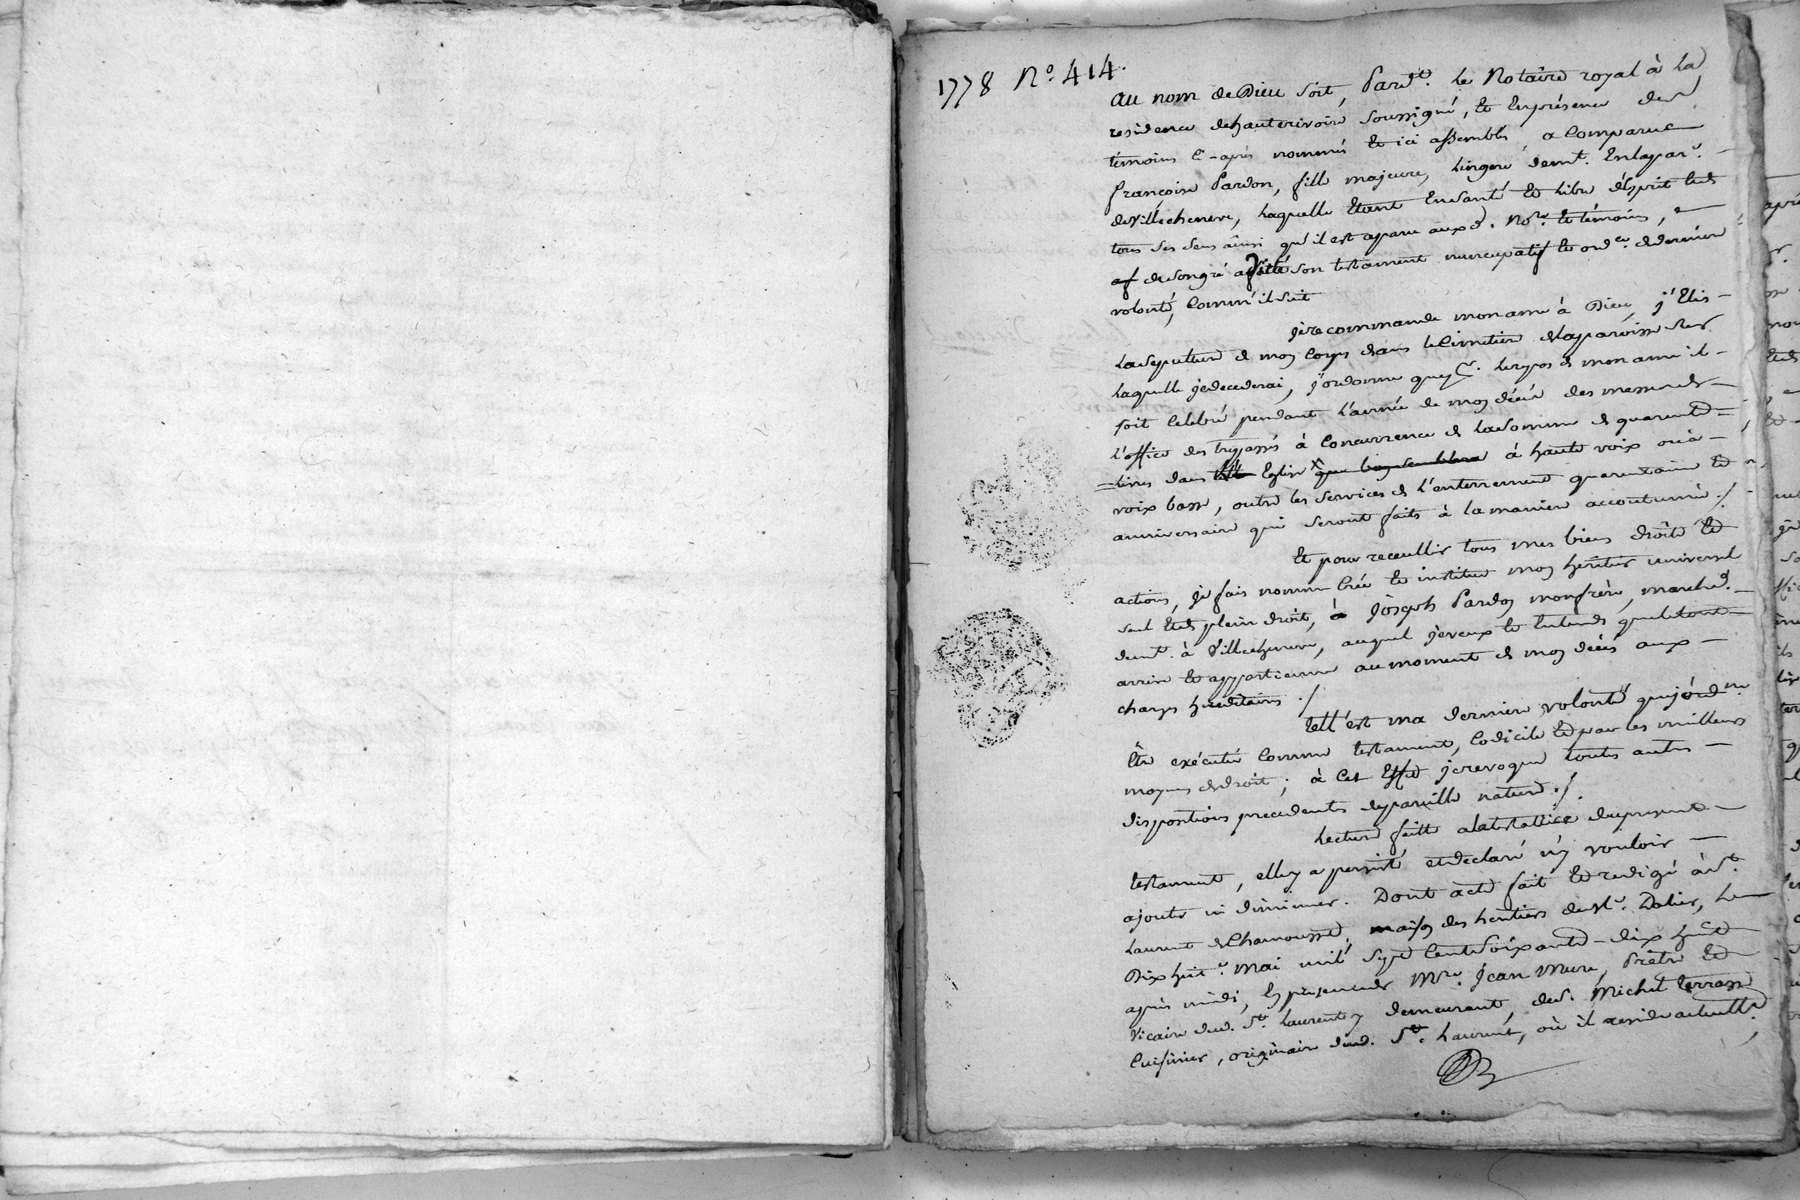 1778 N°. 414.
au nom de Dieu soit, Pard.t le Notaire royal à la
residence de hauterivoire soussigné, et en présence des
témoins ci-après nommés et ici assemblés a comparue
françoise Pardon, fille majeure, lingere demt. en la par.e
de Villechenere, laquelle étant en santé et libre d'esprit et de
tous ses sens ainsi qu'il est aparu aux d. No.re et témoins,
de son gré a fait son testament nuncupatif et ord.ce de derniere
volonté, comm'il suit
je recommande mon ame à Dieu, j'élis
la sepulture de mon corps dans le cimetiere de la paroisse sur
laquelle je decederai, j'ordonne que p.r le repos de mon ame il
soit celebré pendant l'année de mon décès des messes de
l'office des trepassés à concurrence de la somme de quarente
livres dans Eglise que bon semblera à haute voix ou à
voix basse, outre les services de l'enterrement quarentaine et
anniversaire qui seront faits à la maniere accoutumée ./.
Et pour receuillir tous mes biens droits et
actions, je fais nomme crée et institue mon héritier universel
seul et de plein droit, Joseph Pardon mon frère, marchd.
demt. à Villechenere, auquel je veux et entends que le tout
arrive et appartienne au moment de mon décès aux
charges héréditaires ./
tell'est ma derniere volonté que j'ord.ne
être exécutée comme testament, codicile et par les meilleurs
moyens de droit ; à cet effet je revoque toutes autres
dispositions precedentes de pareille nature ./.
Lecture faitte a la testatrice du present
testament, elle y a persisté et declaré n'y vouloir
ajouter ni diminuer. Dont acte fait et redigé à St.
Laurent de Chamousset, maison des heritiers de Mr. Dolier, le
Dix huit.e mai mil sept cent soixante-dix huit
après midi, en presence de Mre. Jean Mure, Prêtre et
Vicaire dud. St. Laurent y demeurant, de s.r Michel terrasse
Cuisinier, originaire dud. St. Laurent, où il reside actuellt.